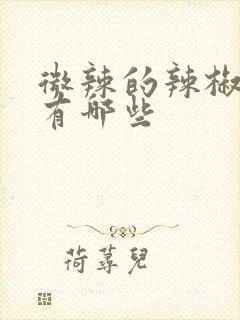 微辣的辣椒
有哪些
荷蕁兒